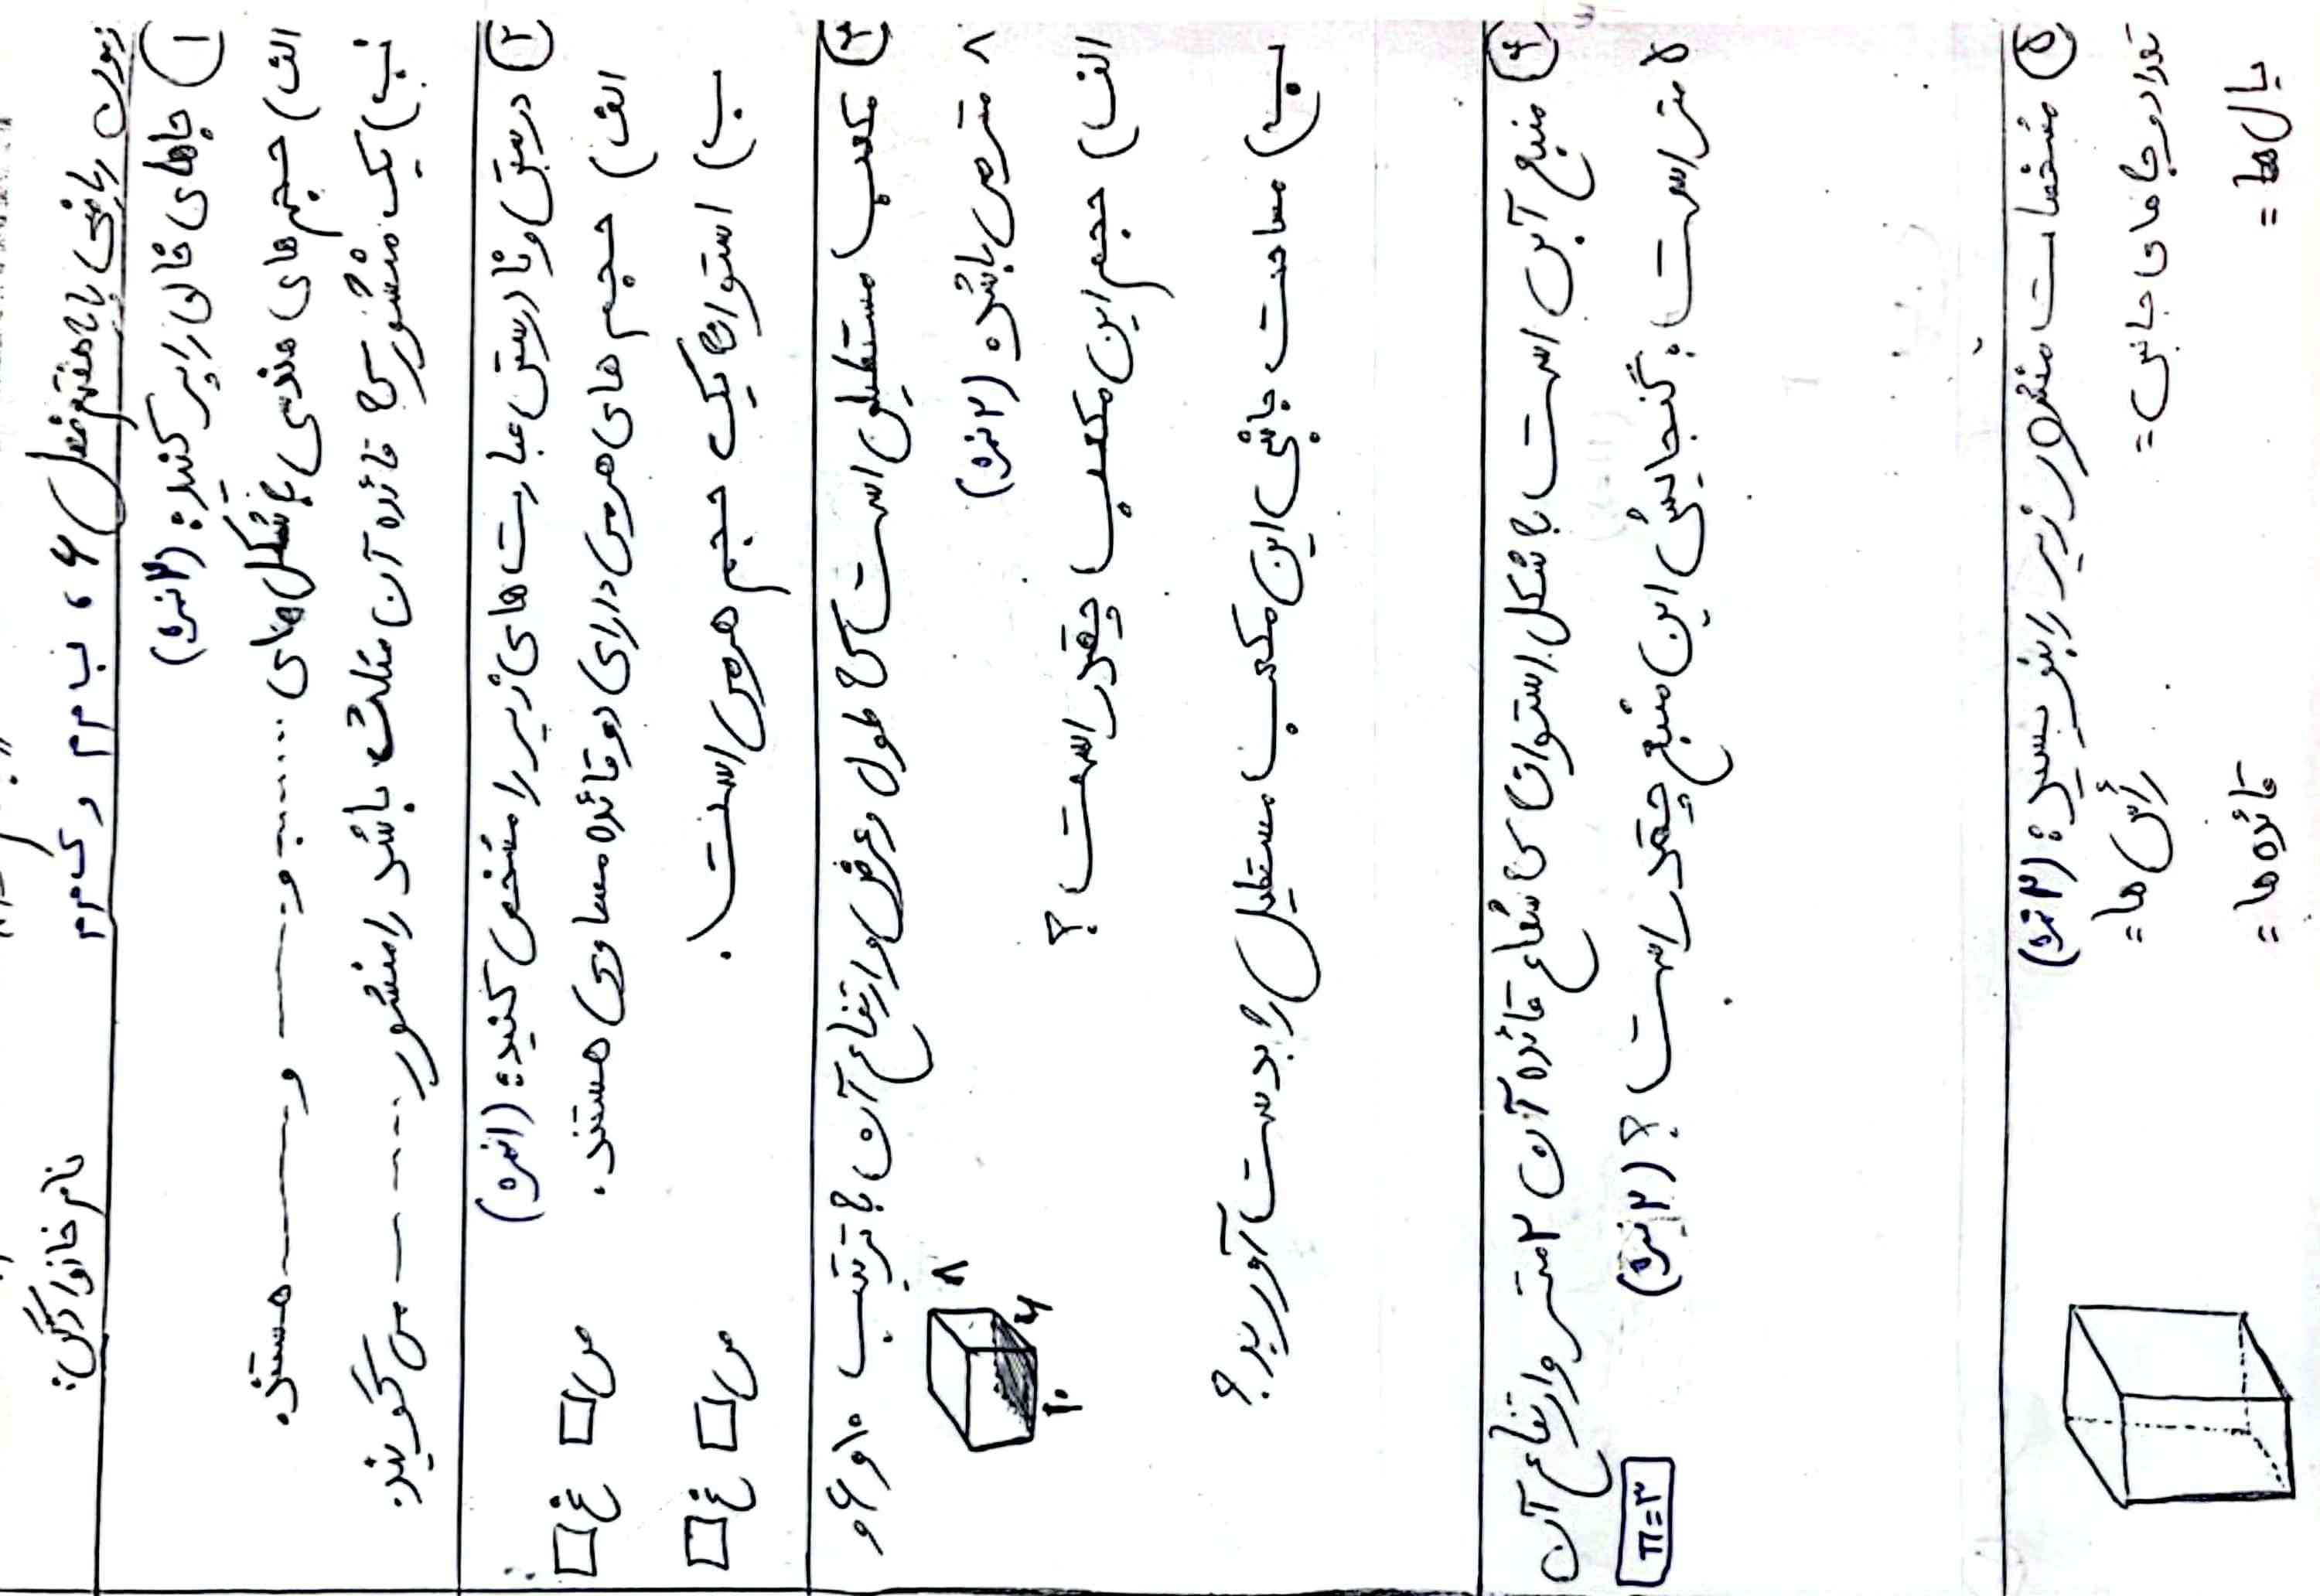 آزمون ریاضی پایه هفتم فصل ۶ ، ب م م و ک م م
نام خانوادگی:
۱ جاهای خالی را پر کنید: (۲ نمره)
الف) حجم های هندسی به شکل های ........ و ------ و ------ هستند.
ب) یک منشوری که قائده آن مثلث باشد را منشور ------ می گویند.
۲ درستی و نادرستی عبارت های زیر را مشخص کنید: (۱ نمره)
الف) حجم های هرمی دارای دو قائده مساوی هستند. ص□ غ□
ب) استوانه یک حجم هرمی است. ص□ غ□
۳ مکعب مستطیلی است که طول و عرض و ارتفاع آن به ترتیب ۱۰ و ۶ و
۸ متر می باشد. (۲ نمره)
۸
۶
۱۰
الف) حجم این مکعب چقدر است؟
ب) مساحت جانبی این مکعب مستطیل را بدست آورید؟
۴ منبع آبی است به شکل استوانه که شعاع قائده آن ۲ متر و ارتفاع آن
۵ متر است؛ گنجایش این منبع چقدر است؟ (۲ نمره)
π=۳
۵ مشخصات منشور زیر را بنویسید: (۲ نمره)
تعداد وجه های جانبی =
رأس ها =
یال ها =
قائده ها =